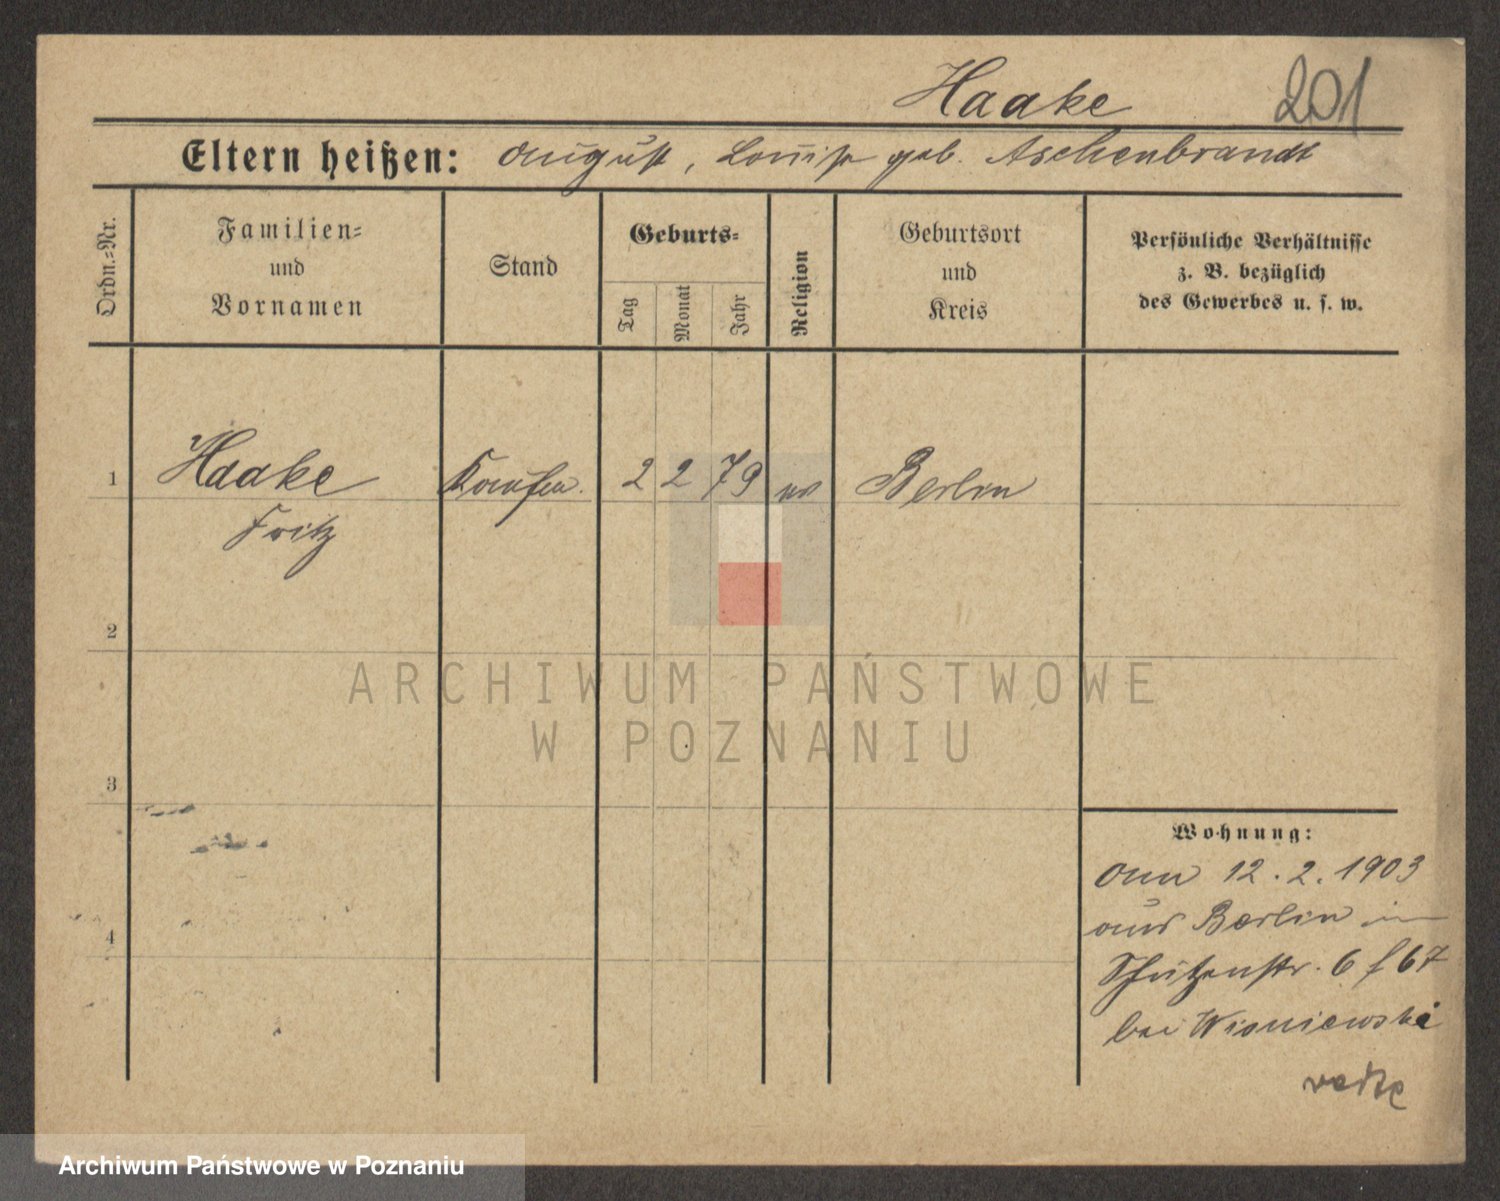 Haake 201
Eltern heißen: August, Louise geb. Aschenbrandt
Ordn.-Nr.
Familien-
und
Vornamen
Stand
Geburts-
Tag
Monat
Jahr
Religion
Geburtsort
und
Kreis
Persönliche Verhältnisse
z. B. bezüglich
des Gewerbes u. s. w.
1 Haake Kaufm. 2 2 79 ev Berlin
Fritz
2
3
4
Wohnung:
am 12.2.1903
aus Berlin in
Schützenstr. 6
bei Wisniewski
ARCHIWUM PAŃSTWOWE
W POZNANIU
Archiwum Państwowe w Poznaniu